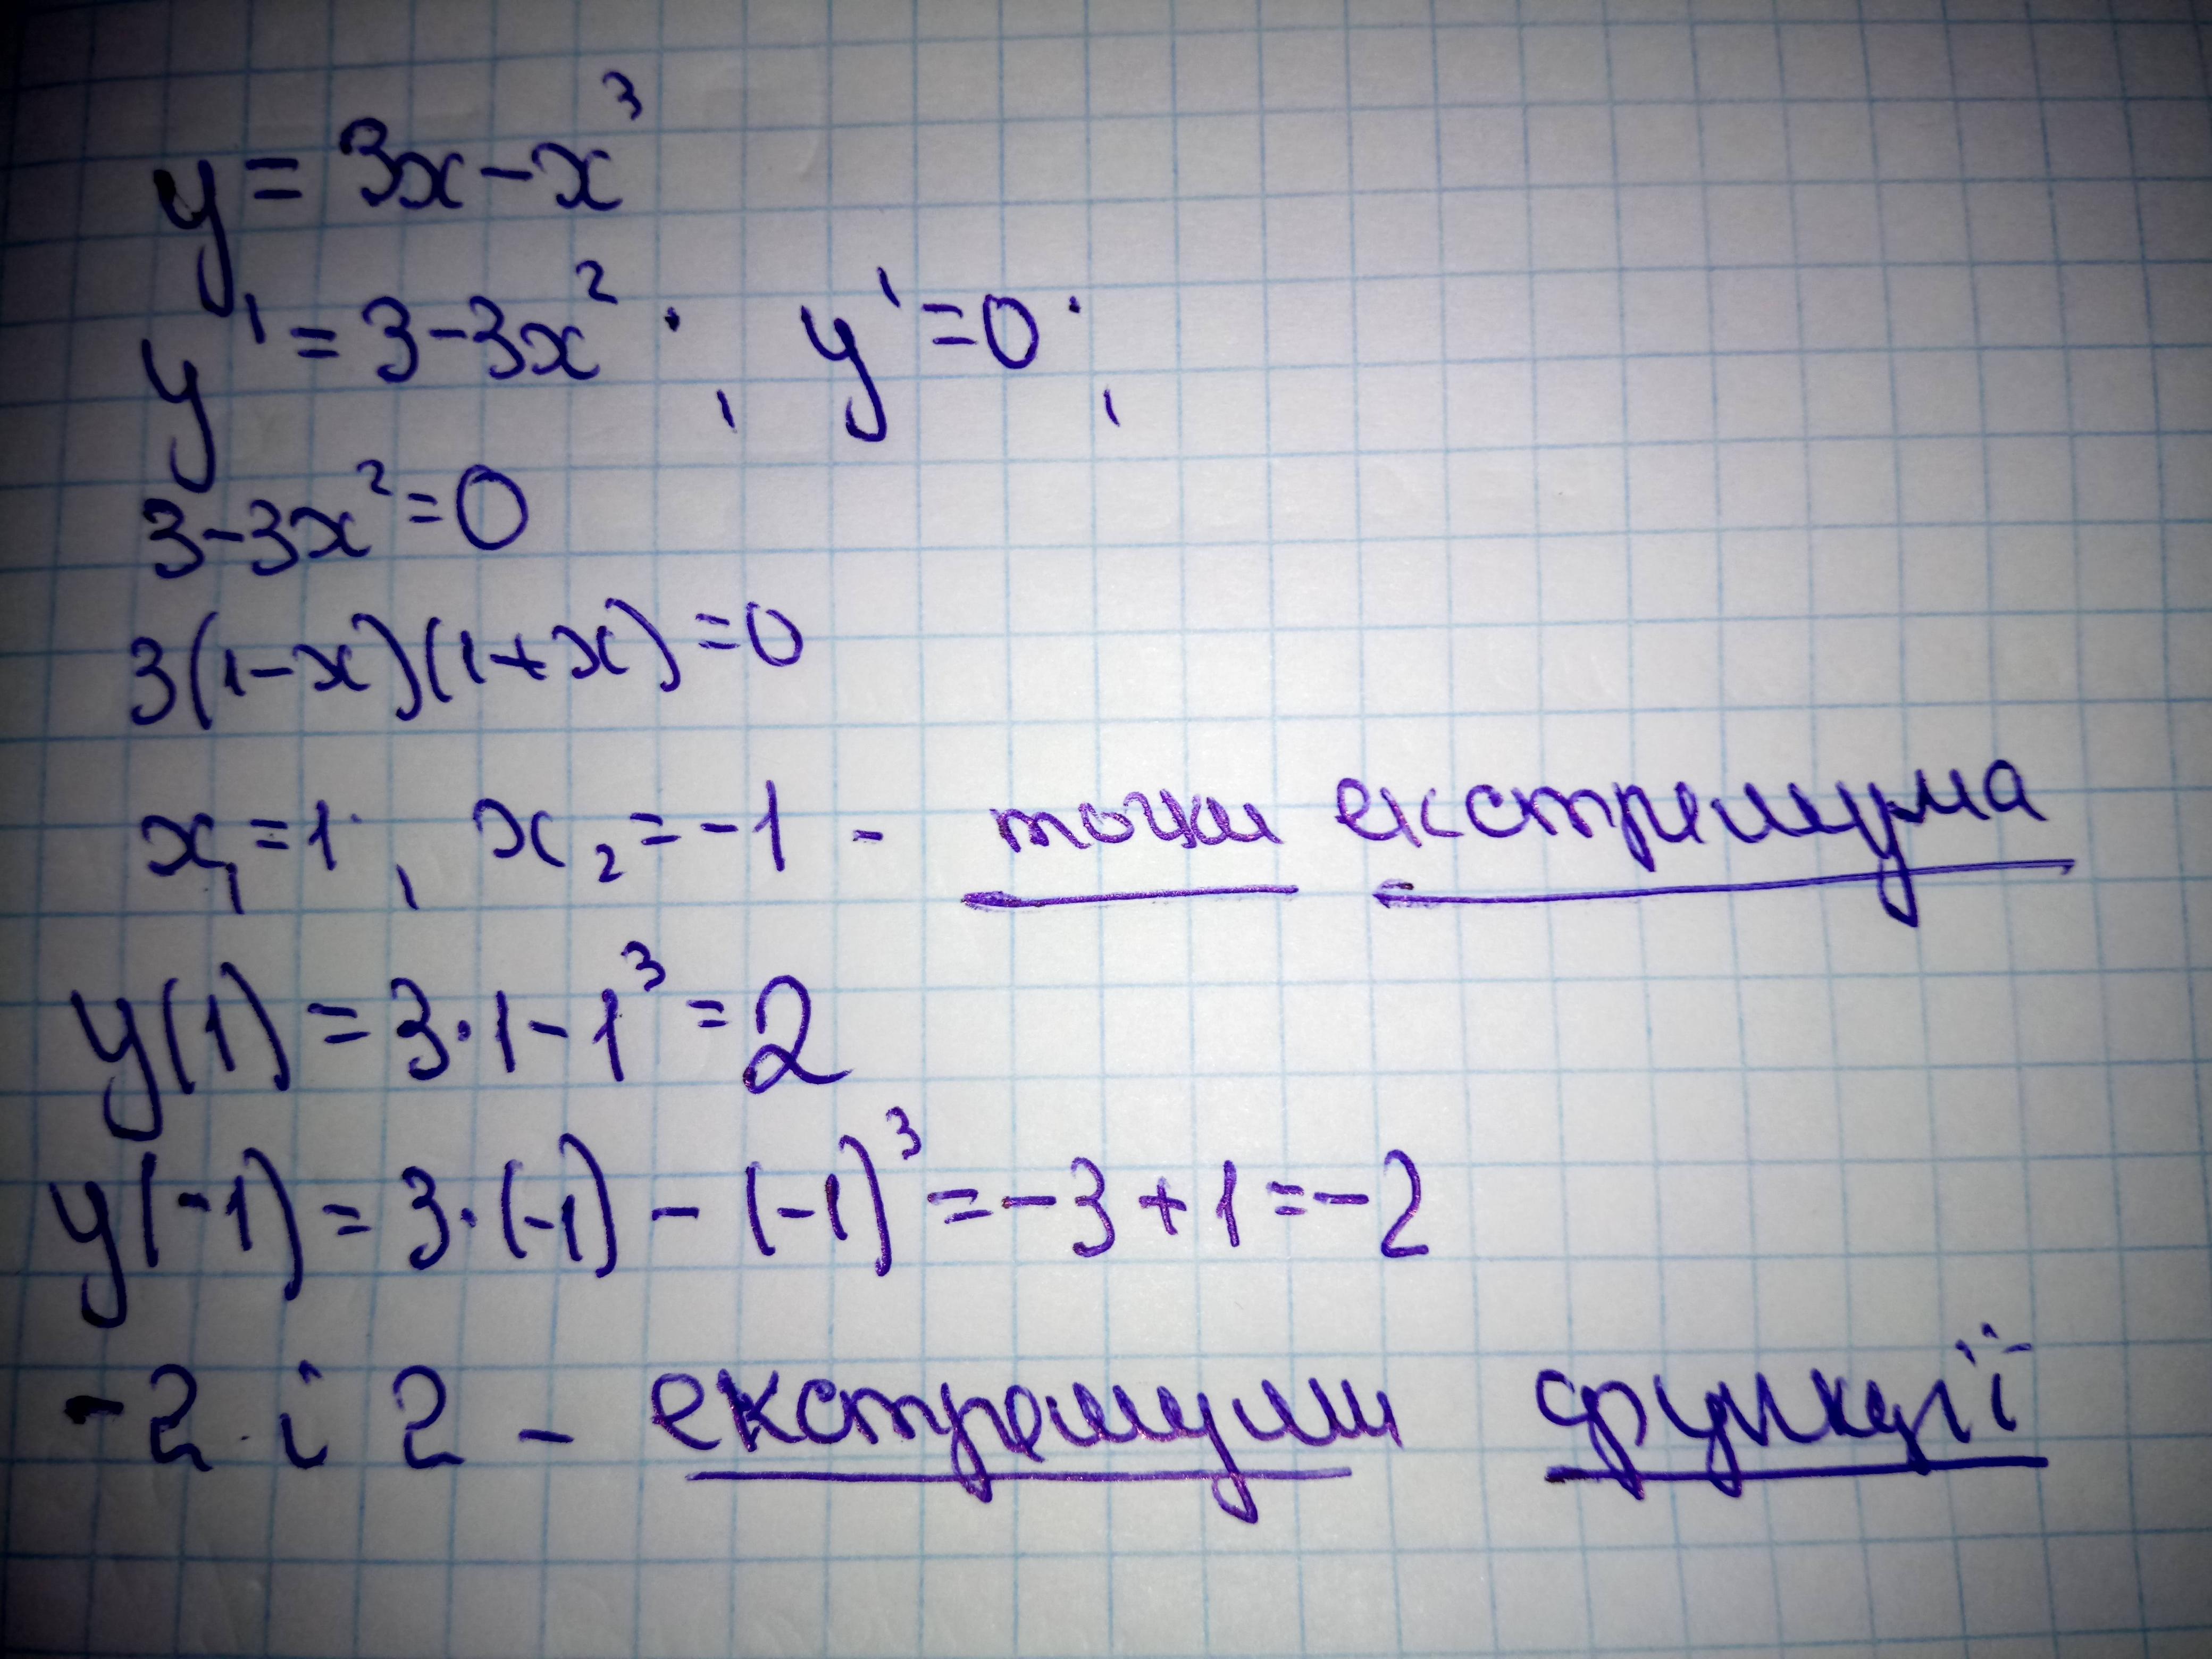 y = 3x - x³
y' = 3 - 3x² ; y' = 0 ;
3 - 3x² = 0
3(1 - x)(1 + x) = 0
x₁ = 1 ; x₂ = -1 - точки екстремума
y(1) = 3·1 - 1³ = 2
y(-1) = 3·(-1) - (-1)³ = -3 + 1 = -2
-2 і 2 - екстремуми функції